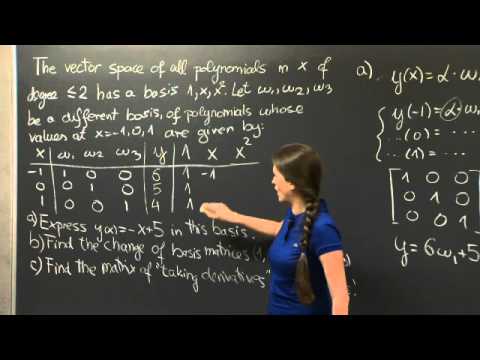 The vector space of all polynomials in x of
degree ≤2 has a basis 1, x, x². Let w₁, w₂, w₃
be a different basis, of polynomials whose
values at x=-1,0,1 are given by:
x w₁ w₂ w₃ y 1 x x²
-1 1 0 0 6 1 -1
0 0 1 0 5 1
1 0 0 1 4 1
a) Express y(x)= -x+5 in this basis.
b) Find the change of basis matrices (1,
c) Find the matrix of "taking derivatives"
a).
y(x)= α·w
y(-1)= α·w
...(0) = ...
...(1) = ...
1 0 0
0 1 0
0 0
y= 6w₁+5